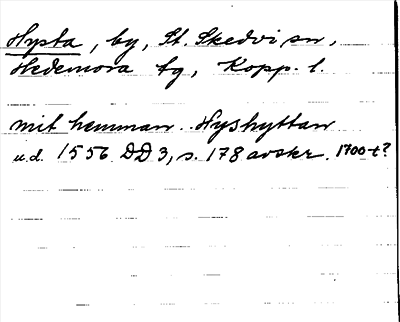 Hysta, by, St. Skedvi sn,
Hedemora tg, Kopp. l.
mit hemman. Hyshyttan
u.d. 1556 DD 3, s. 178 avskr. 1700-t?